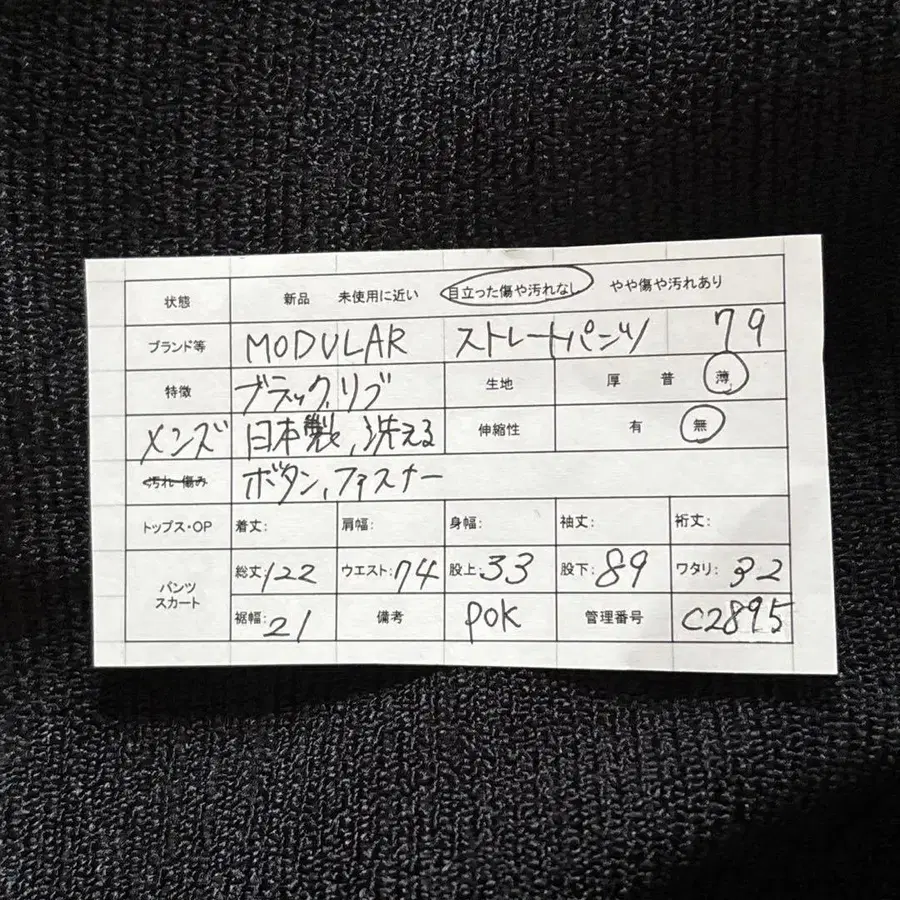 状態 新品 未使用に近い 目立った傷や汚れなし やや傷や汚れあり
ブランド等 MODULAR ストレートパンツ 79
特徴 ブラック、リブ 生地 厚 普 薄
メンズ 日本製、洗える 伸縮性 有 無
汚れ・傷み ボタン、ファスナー
トップス・OP 着丈: 肩幅: 身幅: 袖丈: 裄丈:
パンツ スカート 総丈:122 ウエスト:74 股上:33 股下:89 ワタリ:32
裾幅:21 備考 POK 管理番号 C2895